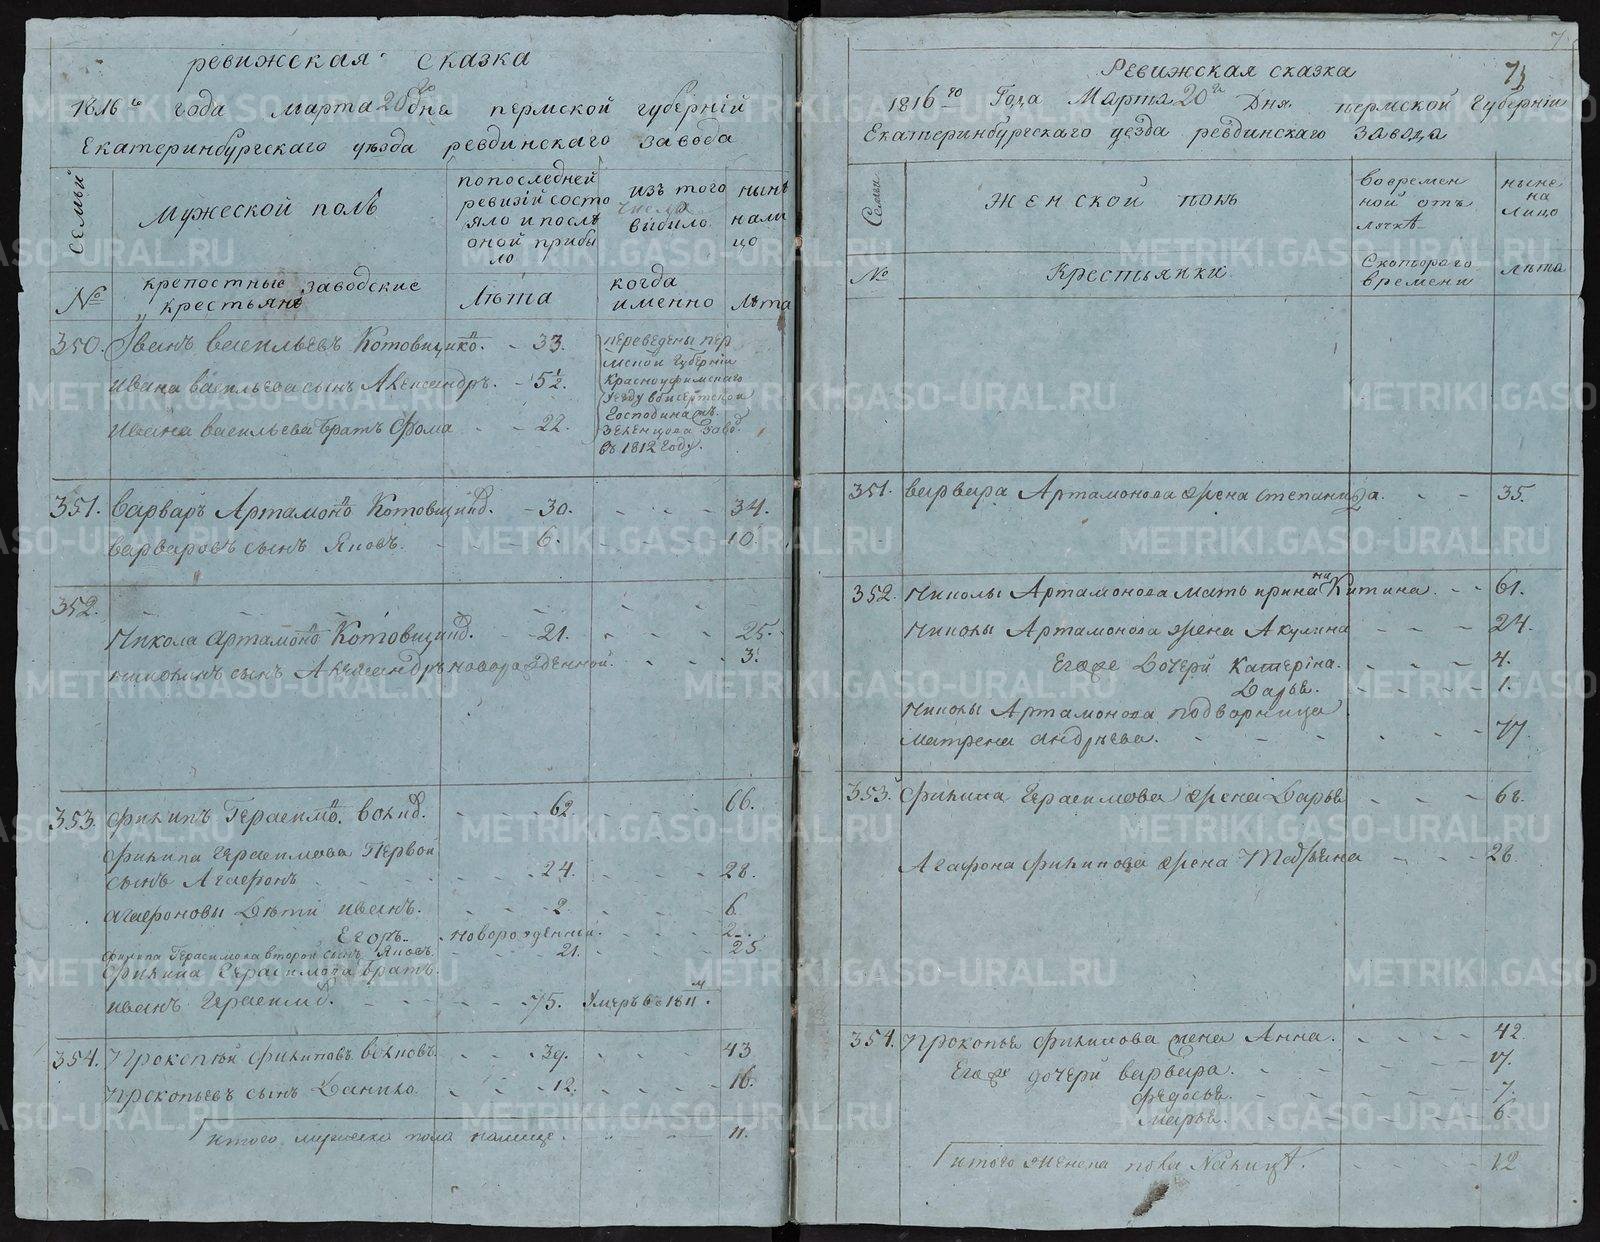 ревижская сказка
1816го года марта 20го дня пермской губерніи
Екатеринбургскаго уѣзда ревдинскаго завода
Семьи
Мужеской полъ
по последней
ревизіи состо
яло и послѣ
оной прибы
ло
изъ того
числа
выбыло
нынѣ
нали
цо
№
крепостные заводские
крестьяне
Лѣта
когда
именно
лѣта
350. Иванъ васильевъ Котовщико. - 33.
переведены пер
мской губерніи
Красноуфимскаго
уезду в бисертской
Господина
зеленцова завод.
въ 1812 году.
ивана васильева сынъ Александръ. - 5½.
ивана васильева братъ Фома - - 22.
351. варваръ Артамоно Котовщико. - 30. - - - 34.
варваровъ сынъ Яковъ. - - - 6. - - - 10.
352. - - - -
Никола артамоно Котовщико. - - 21. - - - 25.
николинъ сынъ Александръ новорожденной. - - - 3.
353. филипъ Герасимо. волко. - - 62 - - - 66.
филипа герасимова Первой
сынъ Агафонъ - - - - 24. - - - 28.
агафоновы Дѣти иванъ. - - - 2. - - - 6.
Егоръ. - новорожденній. - - - 2.
филипа Герасимова второй сынъ Яковъ. - - - 21. - - - 25.
филипа Герасимова братъ.
иванъ Герасимо. - - - - 75. Умеръ въ 1811м.
354. Прокопей филиповъ волковъ. - - 39. - - - 43
Прокопьевъ сынъ Данило. - - - 12. - - - 16.
итого мужеска пола налице. - - - 11.
Ревижская сказка
73
1816го Года Марта 20го Дня пермской Губерніи
Екатеринбургскаго уезда ревдинскаго завода
Семьи
Женской полъ
во времен
ной отъ
лучкѣ
ныне
на
лицо
№
Крестьянки
С котораго
времени
лѣта
351. варвара Артамонова жена степанида. - - 35.
352. Николы Артамонова мать ирина Никитина. - - 61.
Николы Артамонова жена Акулина - - - 24.
Егоже Дочери Катеріна. - - - 4.
Дарья. - - - - 1.
Николы Артамонова подворница
матрена андрѣева. - - - - - 77.
353. филипа Герасимова жена Дарья - - - 68.
Агафона филипова жена Татьяна - - - 28.
354. Прокопья филипова жена Анна. - - - 42.
Егоже дочери варвара. - - - - 17.
федосья. - - - - 7.
марья. - - - - 6.
итого женска пола налицѣ. - - - 12
METRIKI.GASO-URAL.RU